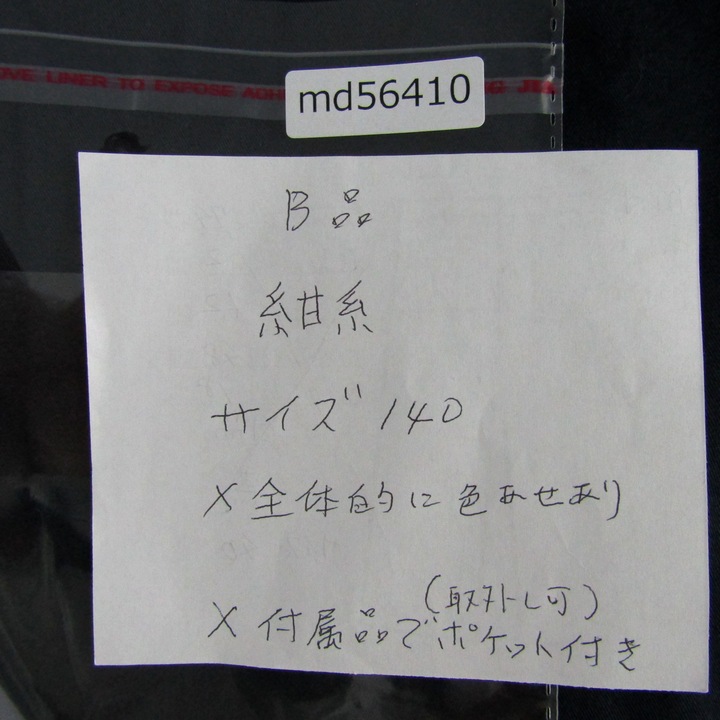 OVE LINER TO EXPOSE ADH
md56410
B品
紺系
サイズ 140
× 全体的に色あせあり
(取外し可)
× 付属品でポケット付き